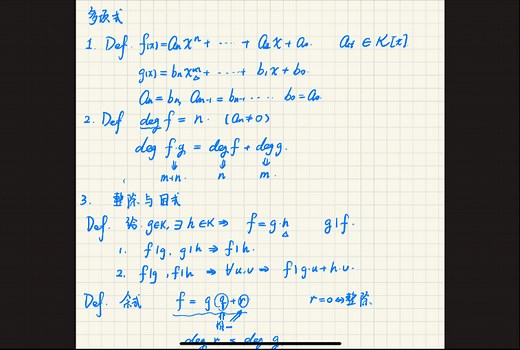 多项式
1. Def. f(x)=aₙxⁿ+ ⋯ + a₁x+a₀. ∈ K[x]
g(x)=bₙxᵐ+ ⋯ + b₁x+b₀.
aₙ=bₙ, aₙ₋₁=bₙ₋₁ ⋯ b₀=a₀
2. Def deg f = n. (aₙ≠0)
deg f·g = deg f + deg g.
⇓ ⇓ ⇓
m+n n m.
3. 整除与因式
Def. 给 g∈K, ∃ h∈K ⇒ f=g·h g|f.
1. f|g, g|h ⇒ f|h.
2. f|g, f|h ⇒ ∀u,v ⇒ f|g·u+h·v.
Def. 余式 f = g q + r r=0⇔整除
唯一
deg r deg g